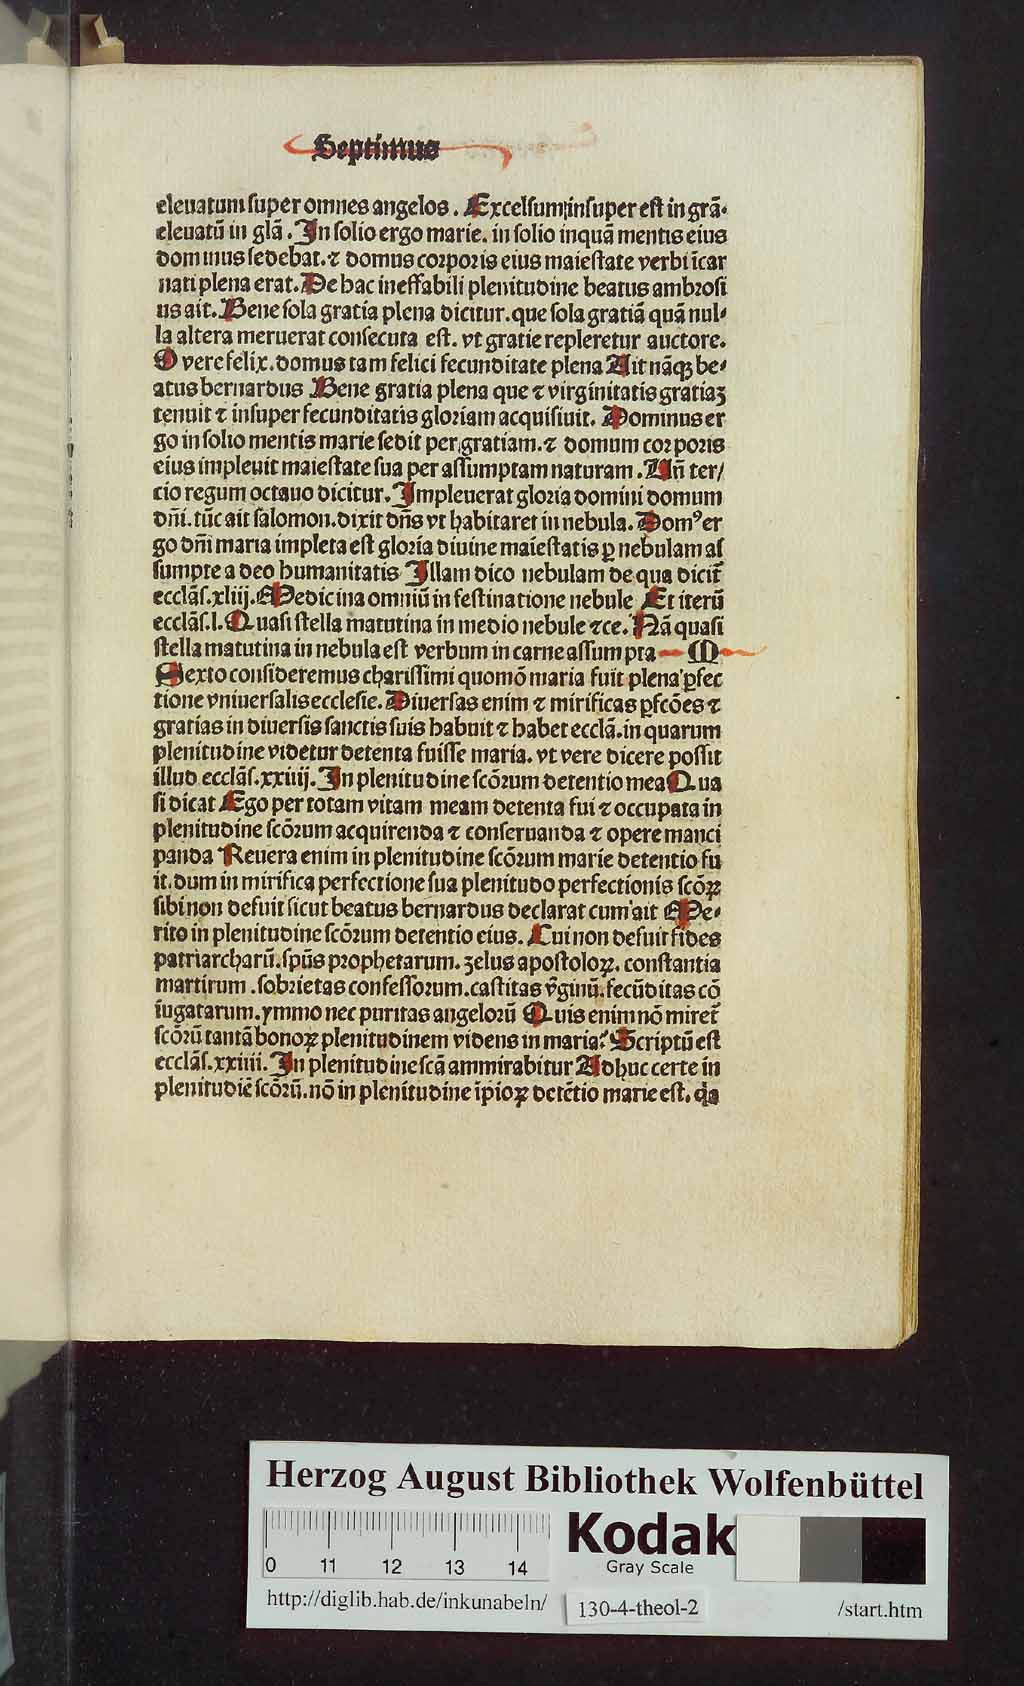 Septimus
eleuatum super omnes angelos. Excelsum insuper est in grā.
eleuatū in glā. In solio ergo marie. in solio inquā mentis eius
dominus sedebat. ⁊ domus corporis eius maiestate verbi īcar
nati plena erat. De hac ineffabili plenitudine beatus ambrosi
us ait. Bene sola gratia plena dicitur. que sola gratiā quā nul⸗
la altera meruerat consecuta est. vt gratie repleretur auctore.
O vere felix. domus tam felici fecunditate plena Ait nāqꝫ be⸗
atus bernardus Bene gratia plena que ⁊ virginitatis gratiaꝫ
tenuit ⁊ insuper fecunditatis gloriam acquisiuit. Dominus er
go in solio mentis marie sedit per gratiam. ⁊ domum corporis
eius impleuit maiestate sua per assumptam naturam. Un̄ ter/
cio regum octauo dicitur. Impleuerat gloria domini domum
dn̄i. tūc ait salomon. dixit dn̄s vt habitaret in nebula. Domꝰ er
go dn̄i maria impleta est gloria diuine maiestatis ꝑ nebulam as
sumpte a deo humanitatis Illam dico nebulam de qua dicit̄
ecclās. xliij. Medicina omniū in festinatione nebule Et iterū
ecclās. l. Quasi stella matutina in medio nebule ⁊ce. Nā quasi
stella matutina in nebula est verbum in carne assumpta M
Sexto consideremus charissimi quomō maria fuit plena ꝑfec
tione vniuersalis ecclesie. Diuersas enim ⁊ mirificas ꝑfcōes ⁊
gratias in diuersis sanctis suis habuit ⁊ habet ecclā. in quarum
plenitudine videtur detenta fuisse maria. vt vere dicere possit
illud ecclās. xxiiij. In plenitudine scōrum detentio mea Qua
si dicat Ego per totam vitam meam detenta fui ⁊ occupata in
plenitudine scōrum acquirenda ⁊ conseruanda ⁊ opere manci
panda Reuera enim in plenitudine scōrum marie detentio fu
it. dum in mirifica perfectione sua plenitudo perfectionis scōꝝ
sibi non defuit sicut beatus bernardus declarat cum ait Me⸗
rito in plenitudine scōrum detentio eius. Cui non defuit fides
patriarcharū. spūs prophetarum. zelus apostoloꝝ. constantia
martirum. sobrietas confessorum. castitas v̄ginū. fecūditas cō
iugatarum. ymmo nec puritas angelorū Quis enim nō miret̄
scōrū tantā bonoꝝ plenitudinem videns in maria? Scriptū est
ecclās. xxiiii. In plenitudine scā ammirabitur Adhuc certe in
plenitudiē scōrū. nō in plenitudine īpioꝝ detētio marie est. qꝛ
Herzog August Bibliothek Wolfenbüttel
0 11 12 13 14
Kodak
Gray Scale
http://diglib.hab.de/inkunabeln/ 130-4-theol-2 /start.htm